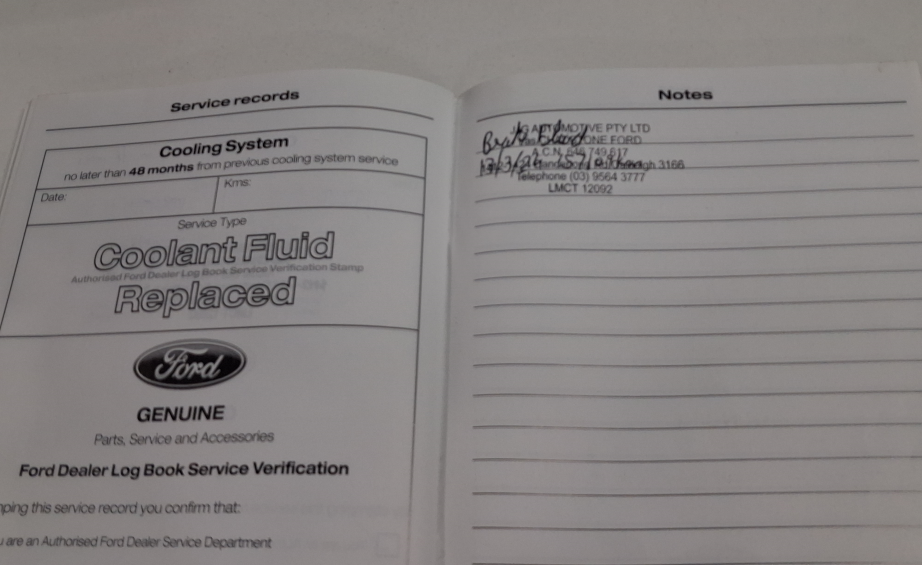 Service records
Cooling System
no later than 48 months from previous cooling system service
Date:
Kms:
Service Type
Coolant Fluid
Authorised Ford Dealer Log Book Service Verification Stamp
Replaced
Ford
GENUINE
Parts, Service and Accessories
Ford Dealer Log Book Service Verification
ping this service record you confirm that:
are an Authorised Ford Dealer Service Department
Notes
AUTOMOTIVE PTY LTD
FORD
A.C.N. 646 749 617
3166
Telephone (03) 9564 3777
LMCT 12092